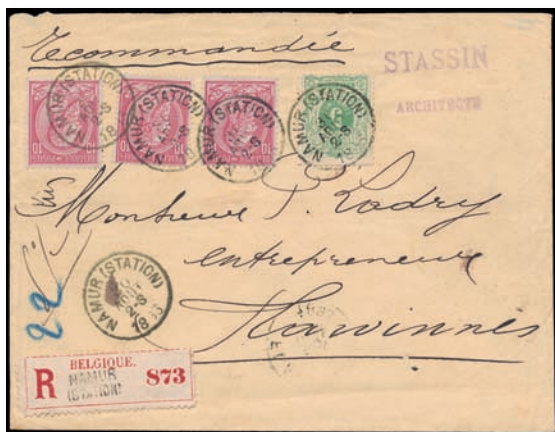 Recommandée
STASSIN
ARCHITECTE
NAMUR (STATION)
NAMUR (STATION)
NAMUR (STATION)
NAMUR (STATION)
10 10
10 10
10 10
5
Monsieur P. Ladry
entrepreneur
Havinnes
22
NAMUR (STATION)
2-S
1893
R
BELGIQUE.
NAMUR
(STATION)
873